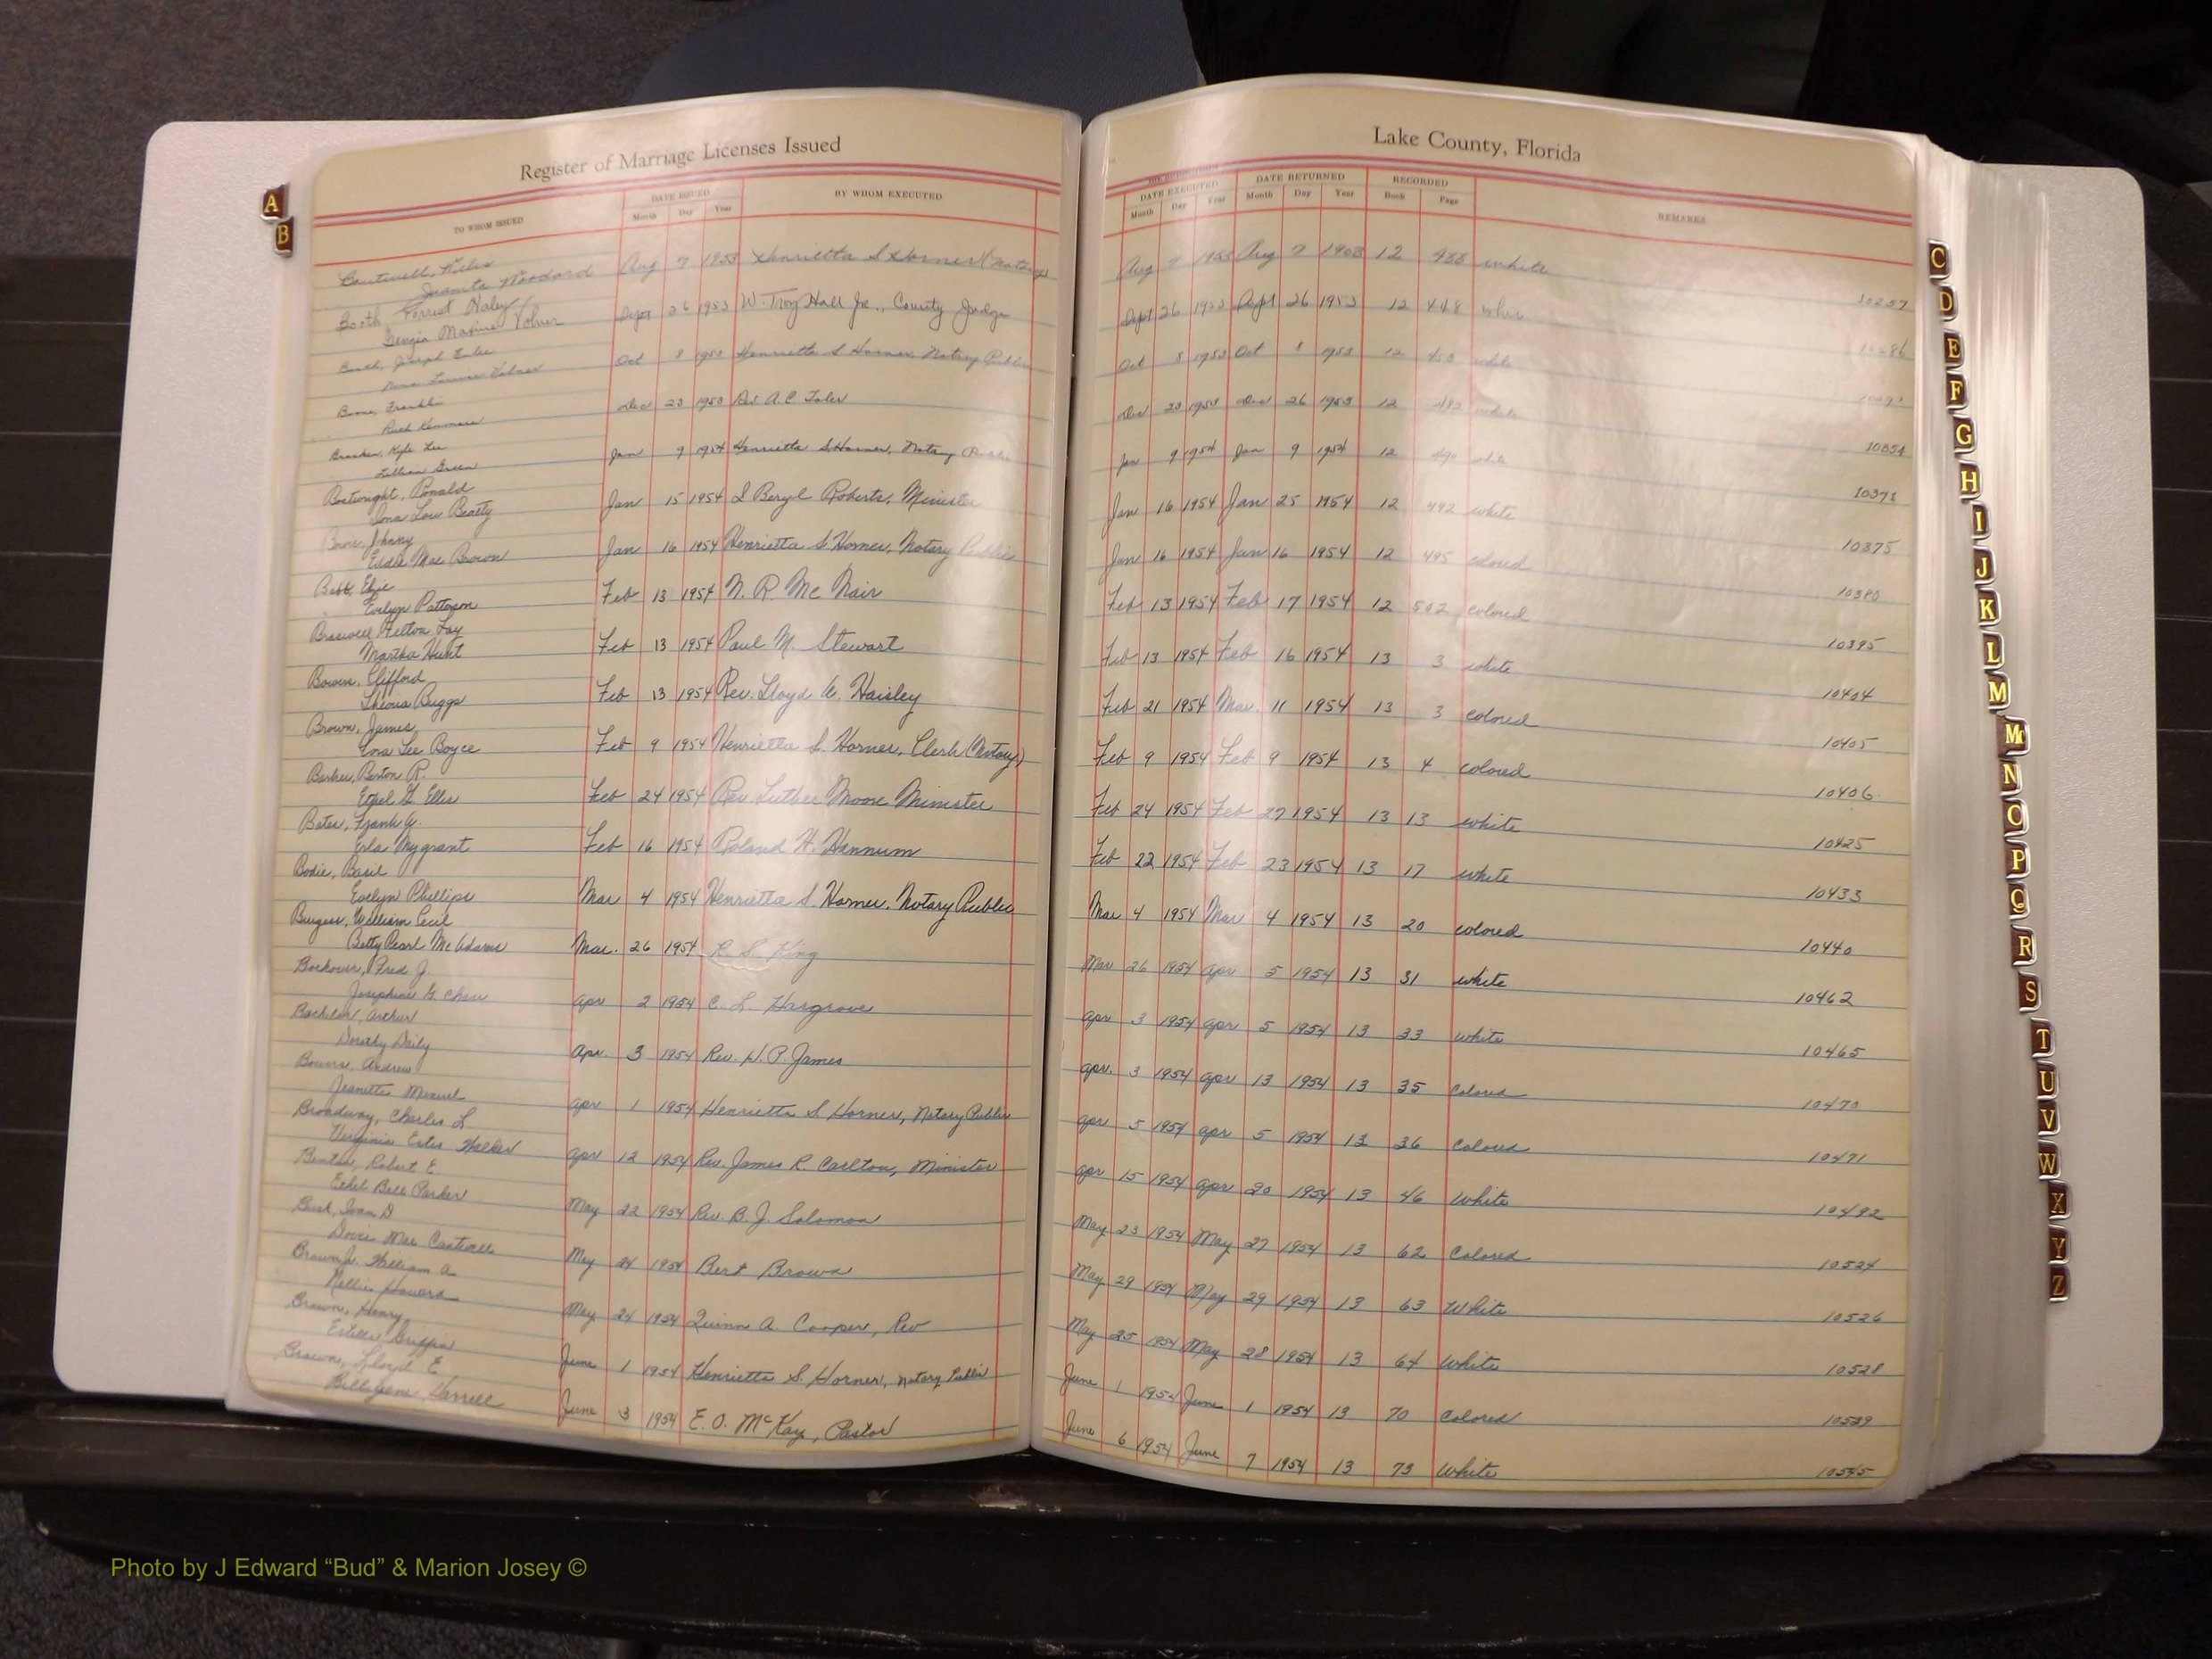 Register of Marriage Licenses Issued
TO WHOM ISSUED
DATE ISSUED
Month Day Year
BY WHOM EXECUTED
Aug 7 1953 Henrietta S Horner (Notary)
Booth Forrest Haley
Maxine
Sept 26 1953 W. Troy Hall Jr., County Judge
Booth, Joseph
Oct 8 1953 Henrietta S Horner, Notary Public
Boone, Franklin
Ruth
Dec 23 1953 Rev A.C.
Kyle Lee
Lillian Green
Jan 9 1954 Henrietta S Horner, Notary Public
Boatwright, Ronald
Iona Lou Beasty
Jan 15 1954 S Beryl Roberts, Minister
Johnny
Eddie Mae Brown
Jan 16 1954 Henrietta S. Horner, Notary Public
Evelyn Patterson
Feb 13 1954 N. R. Mc Nair
Braswell Helton Fay
Martha Hunt
Feb 13 1954 Paul M. Stewart
Bowen, Clifford
Theoria Buggs
Feb 13 1954 Rev. Lloyd A. Haisley
Brown, James
Iona Lee Boyce
Feb 9 1954 Henrietta S. Horner, Clerk (Notary)
Barker, Burton R.
Ethel G. Ellis
Feb 24 1954 Rev Luther Moore Minister
Bates, Frank W.
Erla Nygrant
Feb 16 1954 Roland H. Hannum
Bodie, Basil
Evelyn Phillips
Mar 4 1954 Henrietta S Horner, Notary Public
Burgess, William Cecil
Betty Pearl McAdams
Mar. 26 1954 R. S. King
Fred J.
Josephine G
Apr 2 1954 C. L. Hargrove
Bachelor, Arthur
Dorothy Daily
Apr. 3 1954 Rev. W. P. James
Andrew
Jeanette
Apr 1 1954 Henrietta S Horner, Notary Public
Broadway, Charles L
Virginia Estes Walker
Apr 12 1954 Rev. James R. Carlton, Minister
Robert E.
Ethel Bell Parker
May 22 1954 Rev. B. J. Solomon
Ivan D
Doris Mae Cantrell
May 24 1954 Bert Brown
Brown Jr. William A
Nellie Howard
May 24 1954 Quinn A. Cooper, Rev
Brown, Henry
Estelle Griffin
June 1 1954 Henrietta S. Horner, Notary Public
Brown, Lloyd E
Billigene Harrell
June 3 1954 E. O. McKay, Pastor
Lake County, Florida
DATE EXECUTED
DATE RETURNED
RECORDED
Month Day Year Month Day Year Book Page
REMARKS
Aug 7 1953 Aug 7 1953 12 white
10257
Sept 26 1953 Sept 26 1953 12 448
10286
Oct 8 1953 Oct 8 1953 12 white
Dec 23 1953 Dec 26 1953 12 white
10354
Jan 9 1954 Jan 9 1954 12 white
10371
Jan 16 1954 Jan 25 1954 12 492 white
10375
Jan 16 1954 Jan 16 1954 12 495 colored
10380
Feb 13 1954 Feb 17 1954 12 502 colored
10395
Feb 13 1954 Feb 16 1954 13 3 white
10404
Feb 21 1954 Mar. 11 1954 13 3 colored
10405
Feb 9 1954 Feb 9 1954 13 4 colored
10406
Feb 24 1954 Feb 27 1954 13 13 white
10425
Feb 22 1954 Feb 23 1954 13 17 white
10433
Mar 4 1954 Mar 4 1954 13 20 colored
10440
Mar 26 1954 Apr 5 1954 13 31 white
10462
Apr 3 1954 Apr 5 1954 13 33 white
10465
Apr. 3 1954 Apr 13 1954 13 35 Colored
10470
Apr 5 1954 Apr 5 1954 13 36 Colored
10471
Apr 15 1954 Apr 20 1954 13 46 White
10492
May 23 1954 May 27 1954 13 62 Colored
10524
May 29 1954 May 29 1954 13 63 White
10526
May 25 1954 May 28 1954 13 64 White
10528
June 1 1954 June 1 1954 13 70 Colored
10539
June 6 1954 June 7 1954 13 73 White
10545
A
B
C
D
E
F
G
H
I
J
K
L
M
Mc
N
O
P
Q
R
S
T
U
V
W
X
Y
Z
Photo by J Edward “Bud” & Marion Josey ©